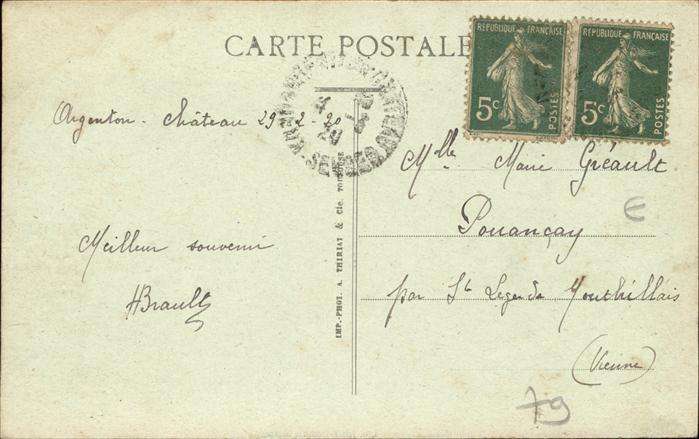 CARTE POSTALE
REPUBLIQUE FRANÇAISE
5c
POSTES
REPUBLIQUE FRANÇAISE
5c
POSTES
Argenton-Château 29-2-20
Meilleur souvenir
HBrault
IMP.-PHOT. A. THIRIAT & Cie. TOULOUSE
Mlle Marie Gréault
Pouançay
par St Leger de Monthrillais
(Vienne)
E
79